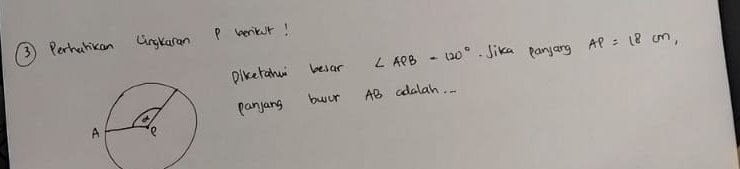 ③ Perhatikan Lingkaran P berikut !
Diketahui besar ∠ APB = 120°. Jika panjang AP = 18 cm,
panjang busur AB adalah...
α
A
P